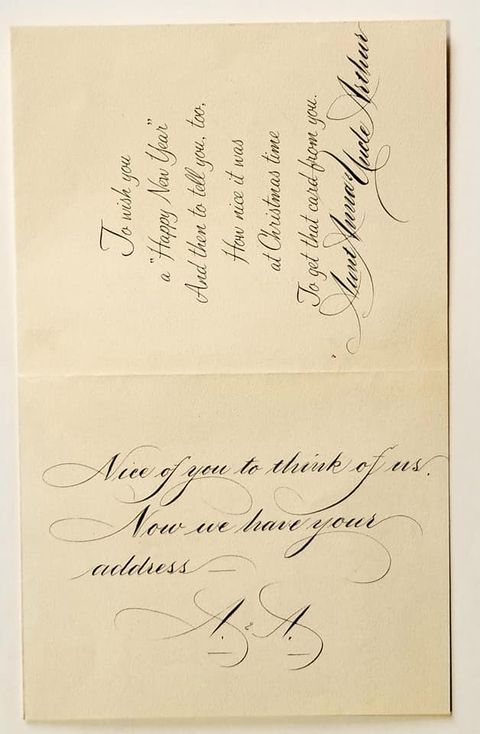 To wish you
a "Happy New Year"
And then to tell you, too,
How nice it was
at Christmas time
To get that card from you.
Aunt Anna & Uncle Arthur
Nice of you to think of us.
Now we have your
address —
A. & A.